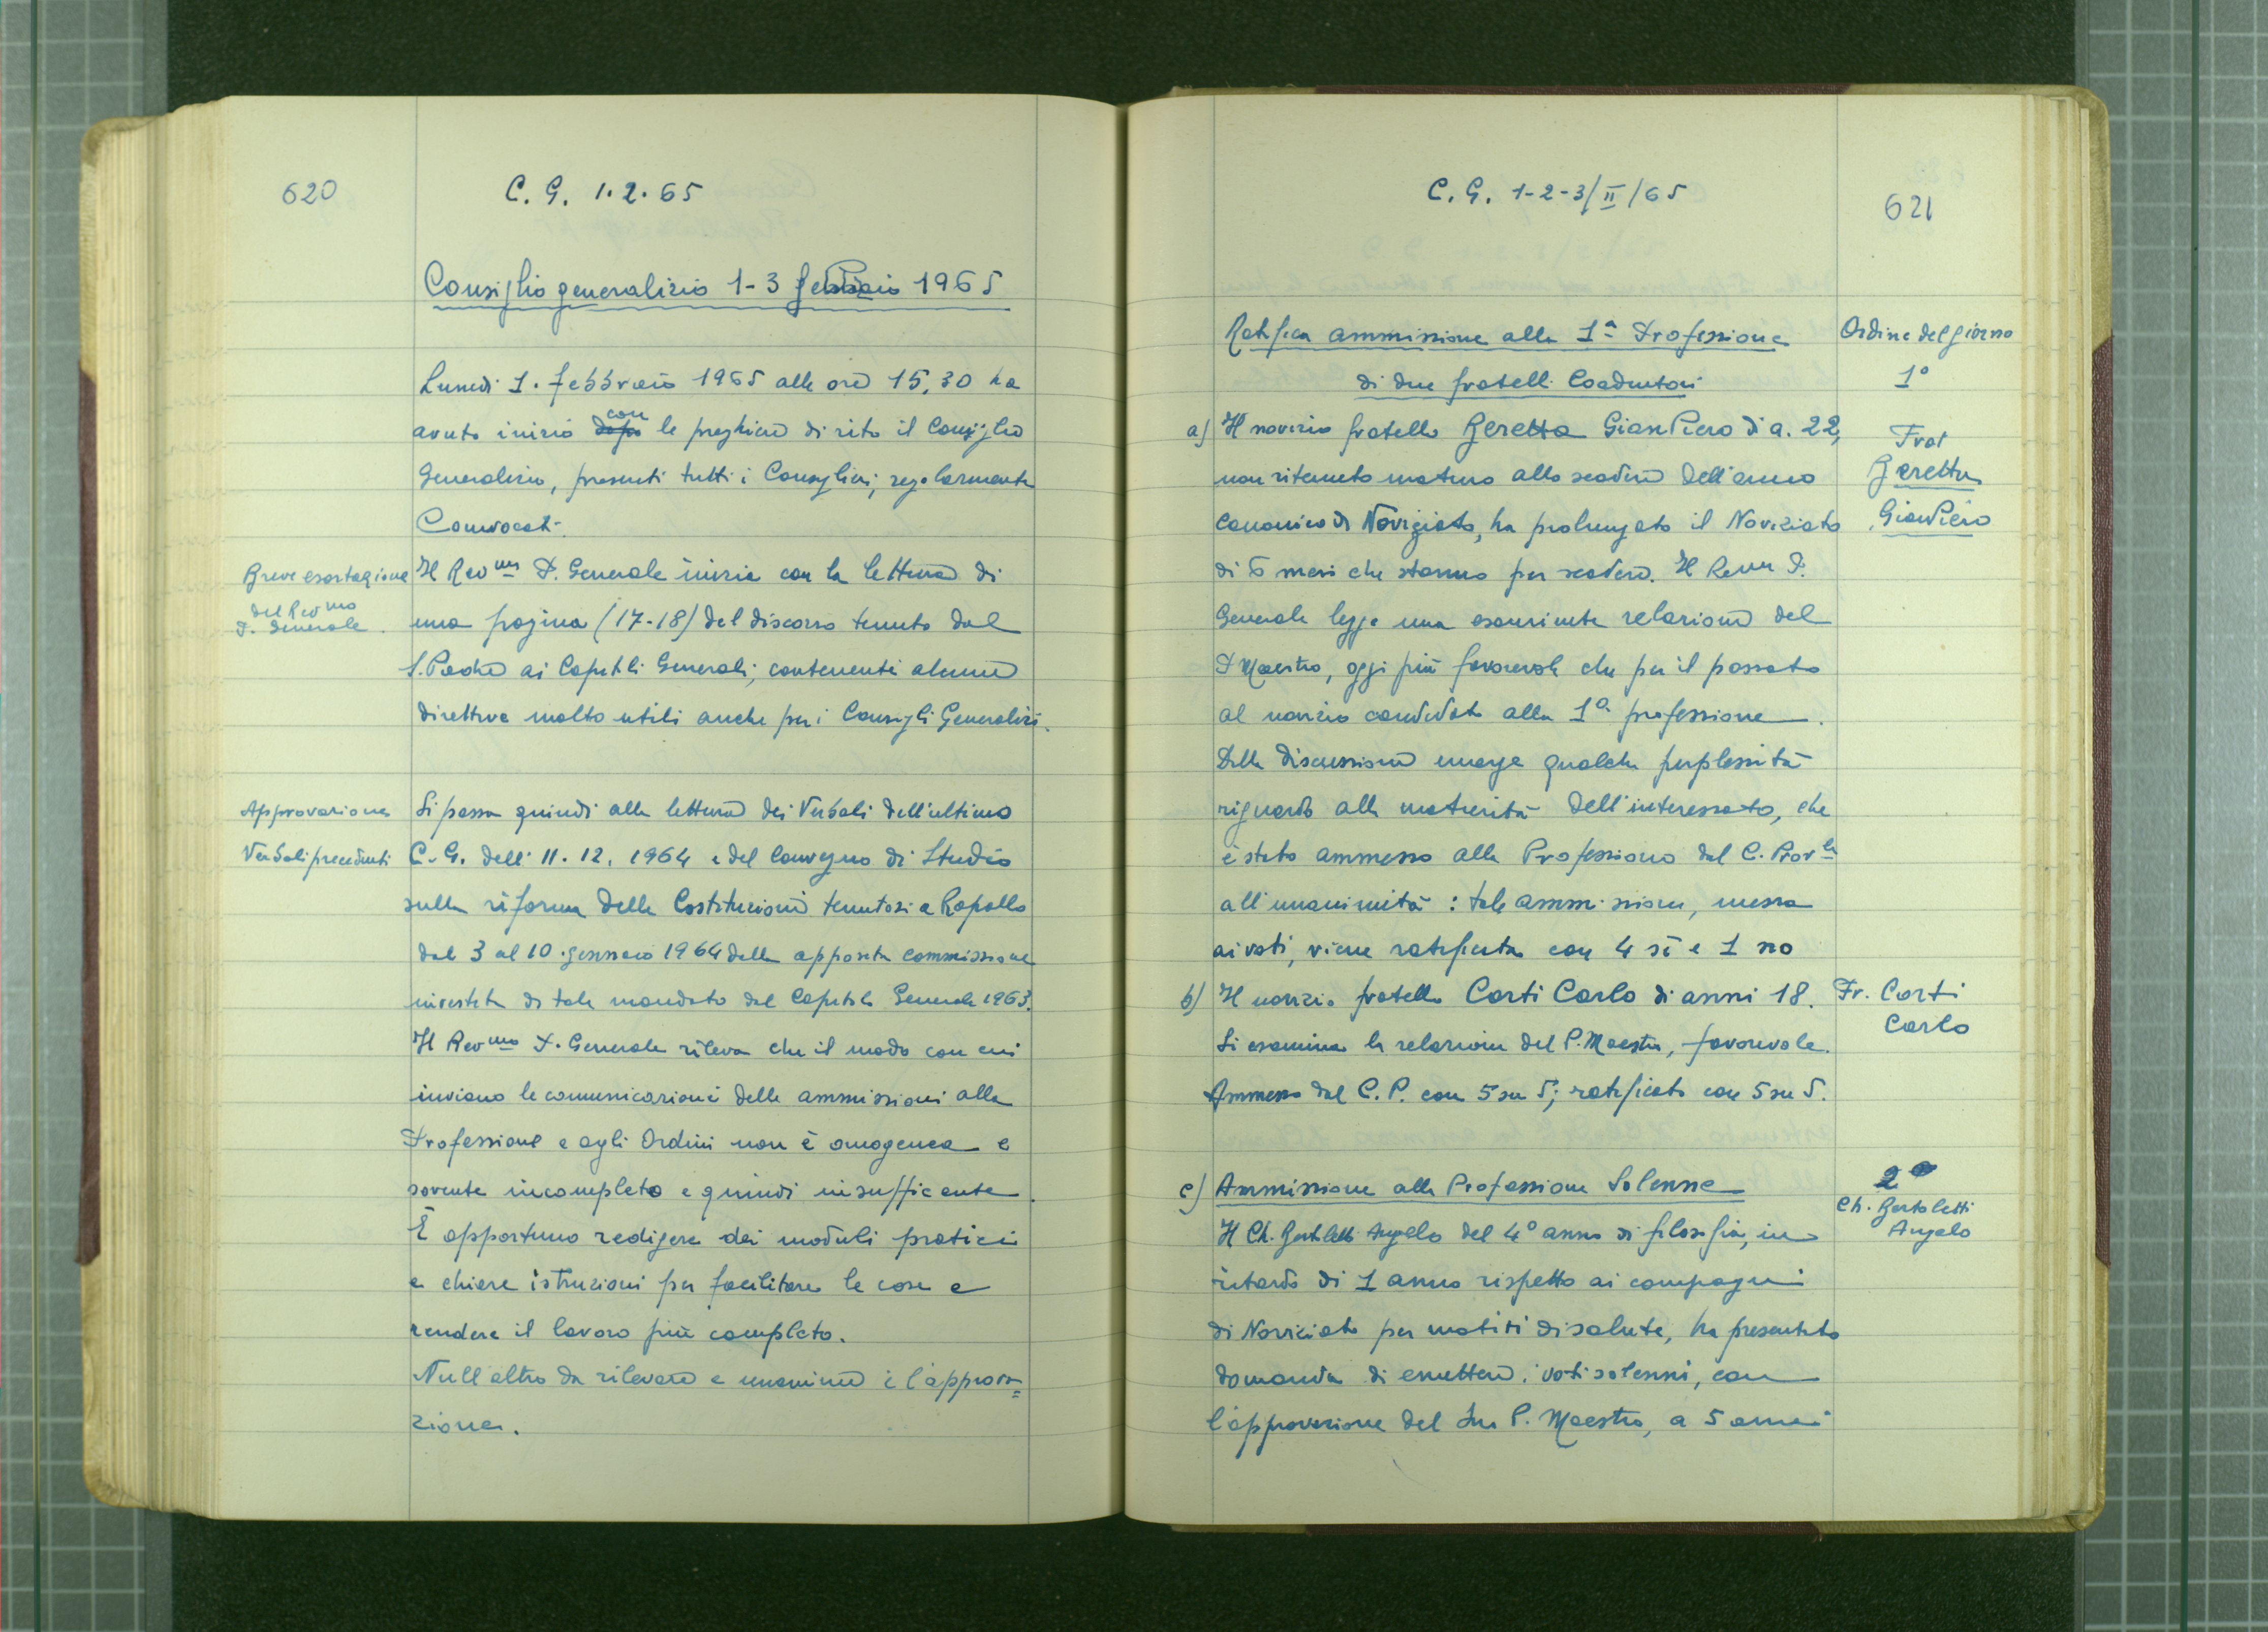 620
C. G. 1.2.65
Consiglio generalizio 1-3 febbraio 1965
Lunedì 1. febbraio 1965 alle ore 15,30 ha
avuto inizio dopo con le preghiere di rito il Consiglio
Generalizio, presenti tutti i Consiglieri, regolarmente
Convocati.
Breve esortazione
del Rev.mo
P. Generale.
Il Rev.mo P. Generale inizia con la lettura di
una pagina (17-18) del discorso tenuto dal
S. Padre ai Capitoli Generali, contenente alcune
direttive molto utili anche per i Consigli Generalizi.
Approvazione
Verbali precedenti
Si passa quindi alla lettura dei Verbali dell'ultimo
C. G. dell' 11. 12. 1964 e del Convegno di Studio
sulla riforma delle Costituzioni tenutosi a Rapallo
dal 3 al 10 gennaio 1964 dalla apposita commissione
investita di tale mandato dal Capitolo Generale 1963.
Il Rev.mo P. Generale rileva che il modo con cui
inviano le comunicazioni delle ammissioni alla
Professione e agli Ordini non è omogenea e
sovente incompleto e quindi insufficiente.
È opportuno redigere dei moduli pratici
e chiare istruzioni per facilitare le cose e
rendere il lavoro più completo.
Null'altro da rilevare e unanime è l'approva=
zione.
C. G. 1-2-3/II/65
621
Ratifica ammissione alla 1ª Professione
di due fratelli Coadiutori
Ordine del giorno
1°
a) Il novizio fratello Beretta GianPiero di a. 22,
non ritenuto maturo allo scadere dell'anno
canonico di Noviziato, ha prolungato il Noviziato
di 6 mesi che stanno per scadere. Il Rev.mo P.
Generale legge una esauriente relazione del
P. Maestro, oggi più favorevole che per il passato
al novizio candidato alla 1ª professione.
Dalla discussione emerge qualche perplessità
riguardo alla maturità dell'interessato, che
è stato ammesso alla Professione dal C. Prov.le
all'unanimità: tale ammissione, messa
ai voti, viene ratificata con 4 sì e 1 no
Frat
Beretta
GianPiero
b) Il novizio fratello Corti Carlo di anni 18.
Si esamina la relazione del P. Maestro, favorevole.
Ammesso dal C. P. con 5 su 5; ratificato con 5 su 5.
Fr. Corti
Carlo
c) Ammissione alla Professione Solenne
Il Ch. Bertoletti Angelo del 4° anno di filosofia, in
ritardo di 1 anno rispetto ai compagni
di Noviziato per motivi di salute, ha presentato
domanda di emettere i voti solenni, con
l'approvazione del suo P. Maestro, a 5 anni
2°
Ch. Bertoletti
Angelo